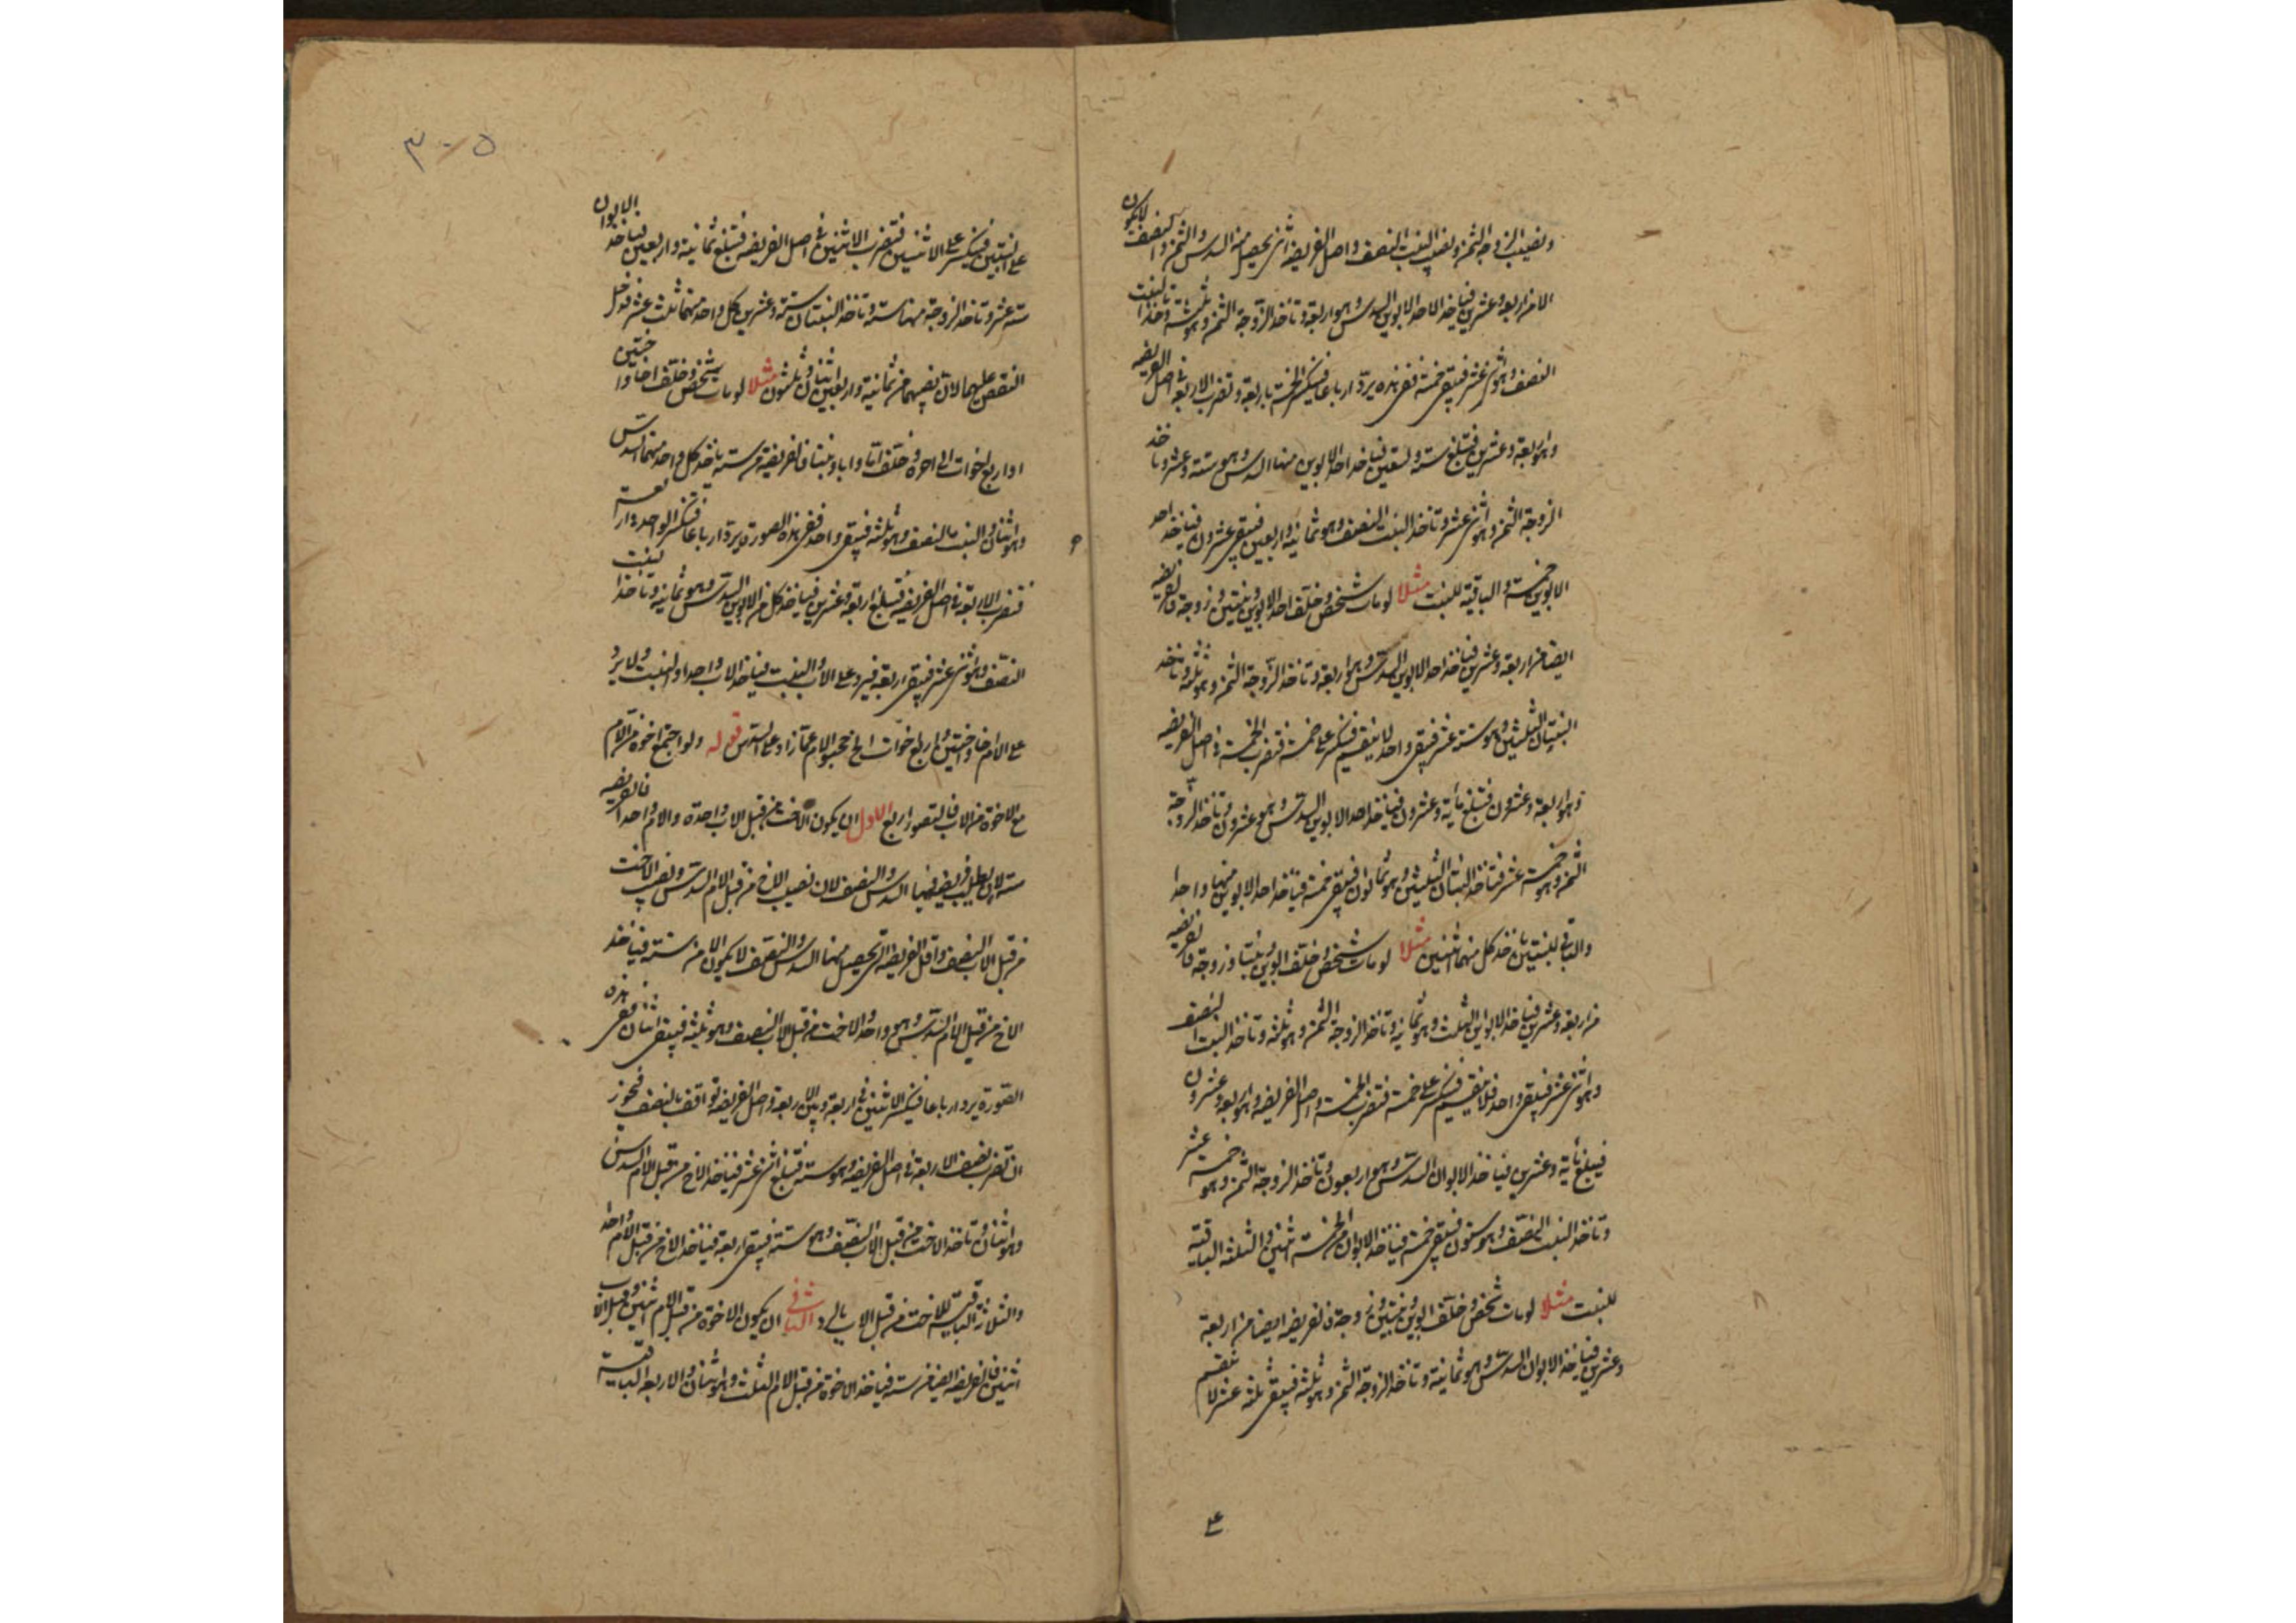 ونصيب الزوجة الثمن ونصيب البنت النصف واصل الفريضة التى يحصل منه السدس والثمن والنصف لا يكون
الا من اربعة وعشرين فياخذ الاحد الابوين السدس وهو اربعة وتاخذ الزوجة الثمن وهو ثلثة وتاخذ البنت
النصف وهو اثنى عشر فيبقى خمسة ففى هذه يرد ارباعا فينكسر الخمسة باربعة وتضرب الاربعة فى اصل الفريضة
وهو اربعة وعشرين فتبلغ ستة وتسعين فياخذ احد الابوين منها السدس وهو ستة وعشر وتاخذ
الزوجة الثمن وهو اثنى عشر وتاخذ البنت النصف وهو ثمانية واربعين فيبقى عشرون فياخذ احد
الابوين خمسة والباقية للبنت مثلا لو مات شخص وخلف احد الابوين وبنتين وزوجة فالفريضة
ايضا من اربعة وعشرين فياخذ احد الابوين السدس وهو اربعة وتاخذ الزوجة الثمن وهو ثلثة وتاخذ
البنتان الثلثين وهو ستة عشر فيبقى واحد لا ينقسم فينكسر على خمسة فتضرب الخمسة فى اصل الفريضة
وهو اربعة وعشرون فتبلغ مأية وعشرون فياخذ احد الابوين السدس وهو عشرون وتاخذ الزوجة
الثمن وهو خمسة عشر وتاخذ البنتان الثلثين وهو ثمانون فيبقى خمسة فياخذ احد الابوين منها واحدا
والباقى للبنتين ياخذ كل منهما اثنين مثلا لو مات شخص وخلف ابوين وبنتا وزوجة فالفريضة
من اربعة وعشرين فياخذ الابوان الثلث وهو ثمانية وتاخذ الزوجة الثمن وهو ثلثة وتاخذ البنت النصف
وهو اثنى عشر فيبقى واحد فلا ينقسم فينكسر على خمسة فتضرب الخمسة فى اصل الفريضة وهو اربعة وعشرون
فيبلغ مأية وعشرين فياخذ الابوان السدس وهو اربعون وتاخذ الزوجة الثمن وهو خمسة عشر
وتاخذ البنت النصف وهو ستون فيبقى خمسة فياخذ الابوان من الخمسة اثنين والثلثة الباقية
للبنت مثلا لو مات شخص وخلف ابوين وبنتين وزوجة فالفريضة ايضا من اربعة
وعشرين فياخذ الابوان السدس وهو ثمانية وتاخذ الزوجة الثمن وهو ثلثة فيبقى ثلثة عشر لا ينقسم
على
٣٠٥
على البنتين فينكسر على الاثنين فتضرب الاثنين فى اصل الفريضة فتبلغ ثمانية واربعين فياخذ الابوان
ستة عشر وتاخذ الزوجة منها ستة وتاخذ البنتان ستة وعشرين لكل واحد منهما ثلث عشر فدخل
النقص عليهما لان نصيبهما من ثمانية واربعين اثنا وثلثون مثلا لو مات شخص وخلف اخا واختين
او اربع اخوات الى اخره وخلف اما وابا وبنتا فالفريضة من ستة ياخذ كل واحد منهما السدس
وهو اثنان والبنت بالنصف وهو ثلثة فيبقى واحد ففى هذه الصورة يرد ارباعا فينكسر الواحد باربعة
فتضرب الاربعة فى اصل الفريضة فتبلغ اربعة وعشرين فياخذ كل من الابوين السدس وهو ثمانية وتاخذ البنت
النصف وهو اثنى عشر فيبقى اربعة فيرد على الاب والبنت فياخذ الاب واحدا والبنت ولا يرد
على الام اخا واختين واربع اخوات الخ حجبوا الام عما زاد على السدس قوله ولو اجتمع اخوة من الام
مع الاخوة من الاب فالتصور اربع الاول ان يكون الاخت من قبل الاب واحدة والام واحدا فالفريضة
ستة لان يطلب فريضة فيها السدس والنصف لان نصيب الاخ من قبل الام السدس ونصيب الاخت
من قبل الاب النصف واقل الفريضة التى يحصل منها السدس والنصف لا يكون الا من ستة فياخذ
الاخ من قبل الام السدس وهو واحد والاخت من قبل الاب النصف وهو ثلثة فيبقى اثنان ففى هذه
الصورة يرد ارباعا فينكسر الاثنين فى اربعة وبين الاربعة واصل الفريضة توافق بالنصف فيجوز
ان تضرب نصف الاربعة فى اصل الفريضة وهو ستة فتبلغ اثنى عشر فياخذ الاخ من قبل الام السدس
وهو اثنان وتاخذ الاخت من قبل الاب النصف وهو ستة فيبقى اربعة فياخذ الاخ من قبل الام واحد
والثلاثة الباقية للاخت من قبل الاب بالرد الثانى ان يكون الاخوة من قبل الام اثنين وقبل الاب
اثنين فالفريضة ايضا من ستة فياخذ الاخوة من قبل الام الثلث وهو اثنان والاربعة الباقية